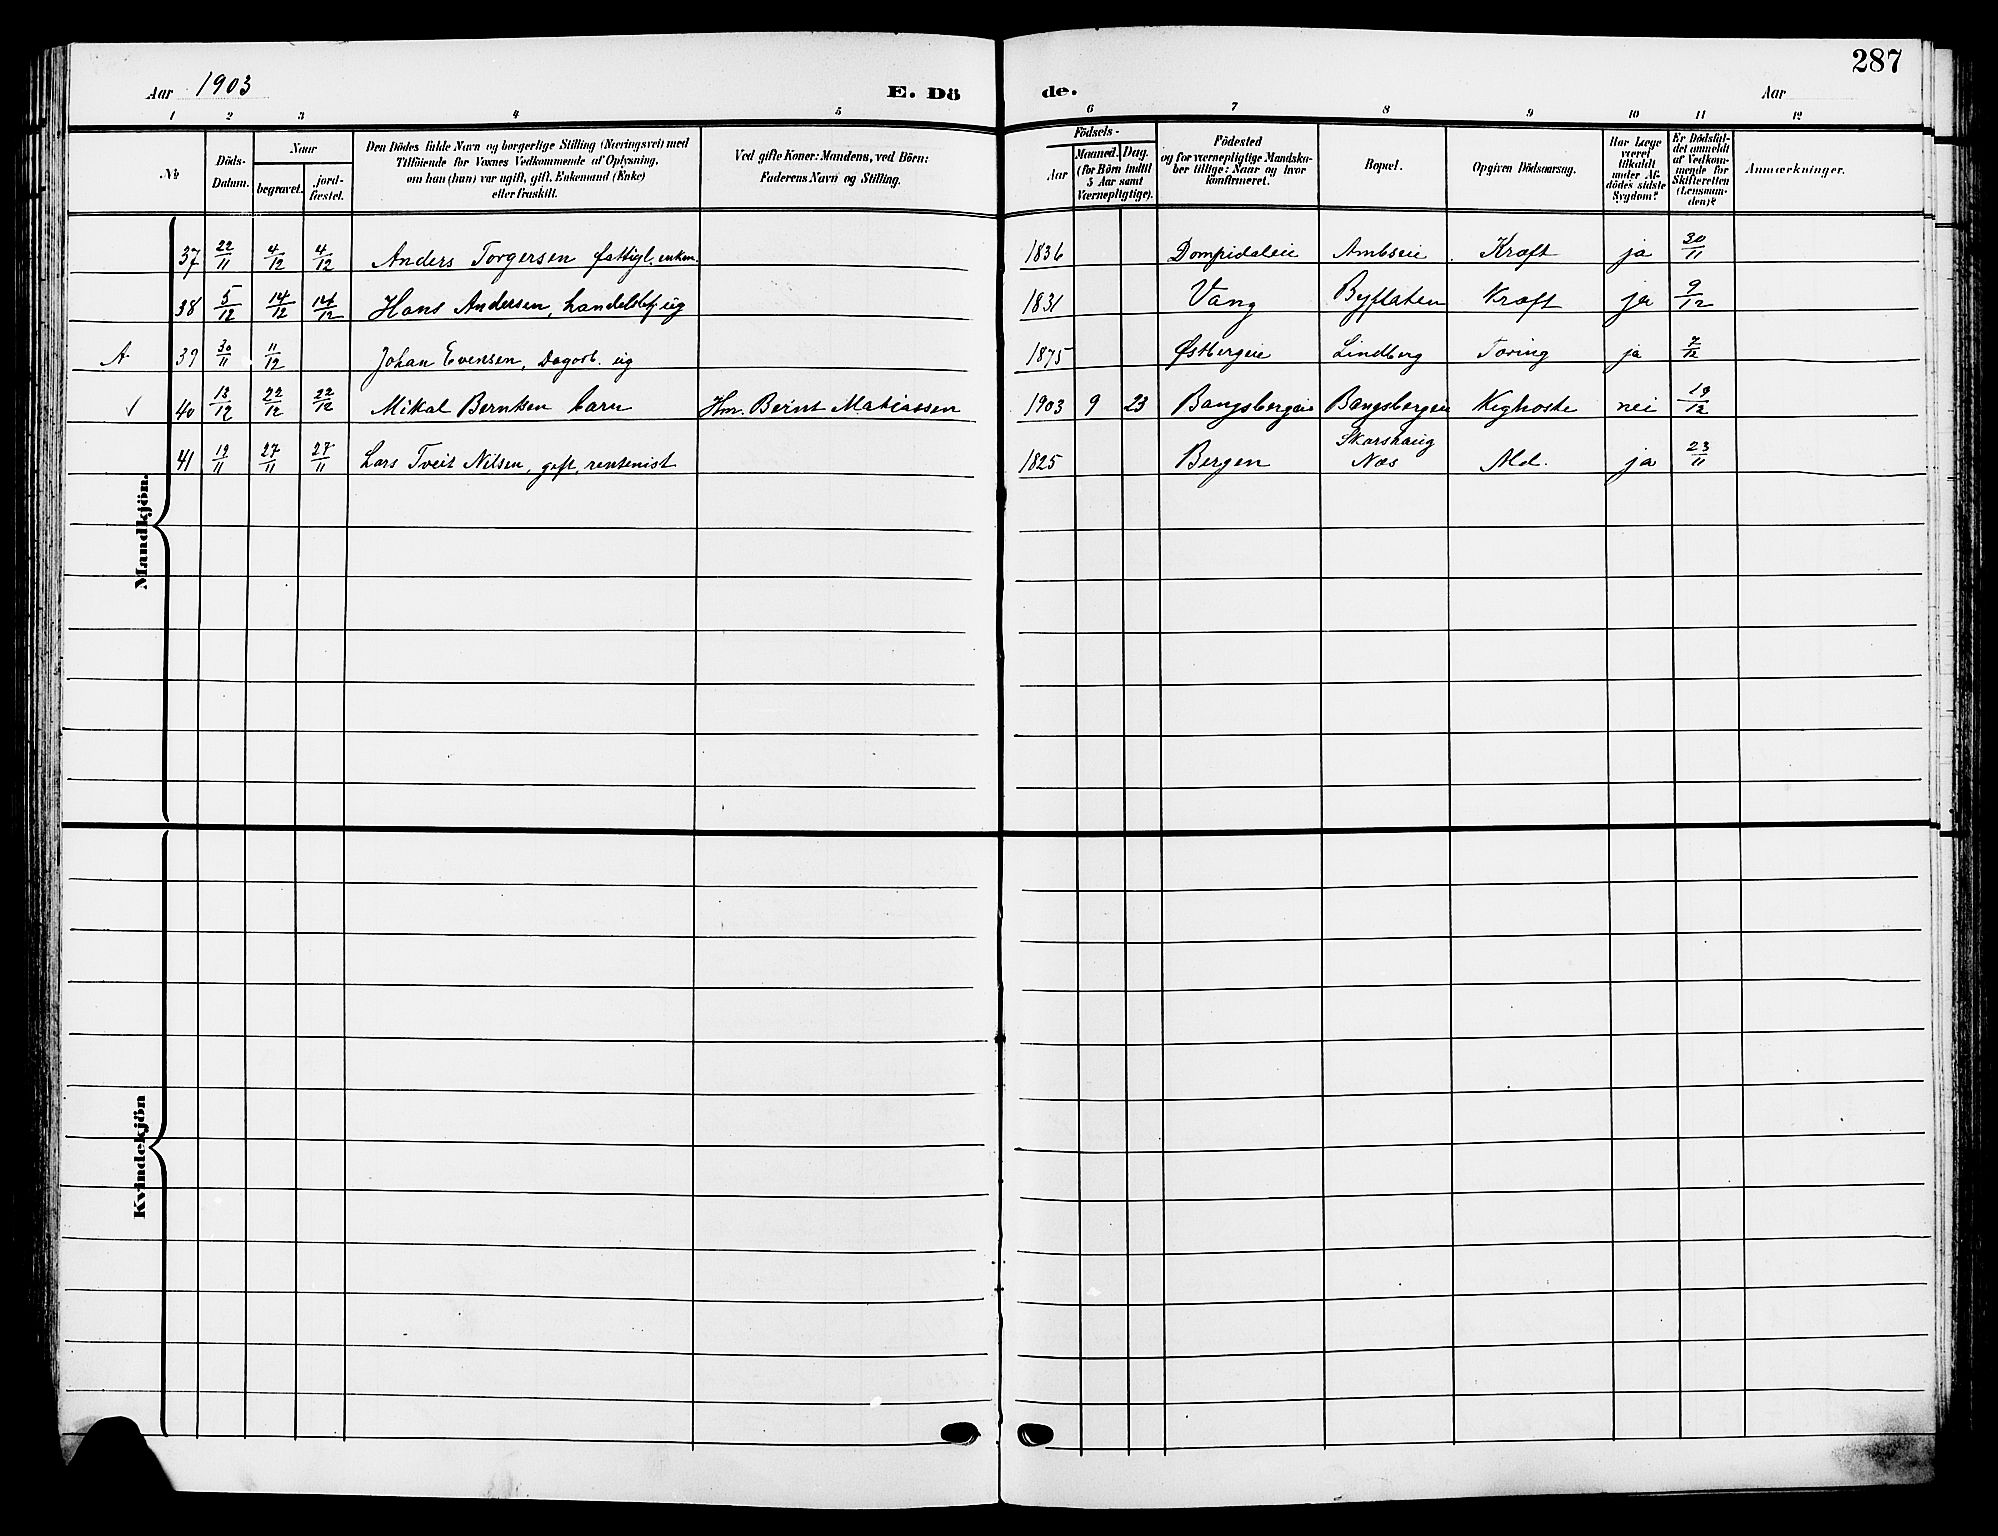 287
Aar 1903 E. Dö de. Aar
1 2 3 4 5 6 7 8 9 10 11 12
No
Döds-Datum.
Naar
begravet.
jord-fæstet.
Den Dödes fulde Navn og borgerlige Stilling (Næringsvei) med
Tilföiende for Voxnes Vedkommende af Oplysning,
om han (hun) var ugift, gift, Enkemand (Enke)
eller fraskilt.
Ved gifte Koner: Mandens, ved Börn:
Faderens Navn og Stilling.
Födsels-
Aar
Maaned. Dag.
(for Börn indtil
5 Aar samt
Værnepligtige).
Födested
og for værnepligtige Mandska-
ber tillige: Naar og hvor
konfirmeret.
Bopæl.
Opgiven Dödsaarsag.
Har Læge
været
tilkaldt
under Af-
dödes sidste
Sygdom?
Er Dödsfal-
det anmeldt
af Vedkom-
mende for
Skifteretten
(Lensman-
den)?
Anmærkninger.
Mandkjön.
37 22/11 4/12 4/12 Anders Torgersen fattigl. enkem. 1836 Dompidaleie Ambseie Kræft ja 30/11
38 5/12 14/12 14/12 Hans Andersen, handelsbf. ug 1831 Vang Byflaten Kræft ja 9/12
A 39 30/11 11/12 Johan Evensen, Dagarb. ug 1875 Østbergeie Lindberg Tæring ja 7/12
✓ 40 13/12 22/12 22/12 Mikal Berntsen barn Hm. Bernt Matiassen 1903 9 23 Bangsbergeie Bangsbergeie Kighoste nei 19/12
41 19/11 27/11 27/11 Lars Tveit Nilsen, gift, rentenist 1825 Bergen Skarshaug
Næs Ald. ja 23/11
Kvindekjön